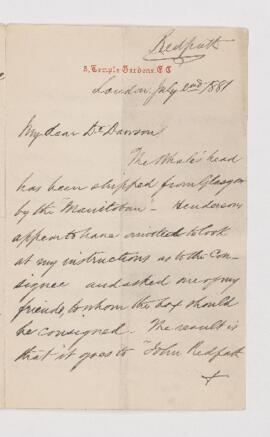 Redpath
5, Temple Gardens, E.C
London, July 2nd, 1881
My dear Dr Dawson
The Whale's head
has been shipped from Glasgow
by the "Manitoban" - Hendersons
appear to have omitted to look
at my instructions as to the Con-
signee and asked one of my
friends, to whom the box should
be consigned. The result is
that it goes to "John Redpath